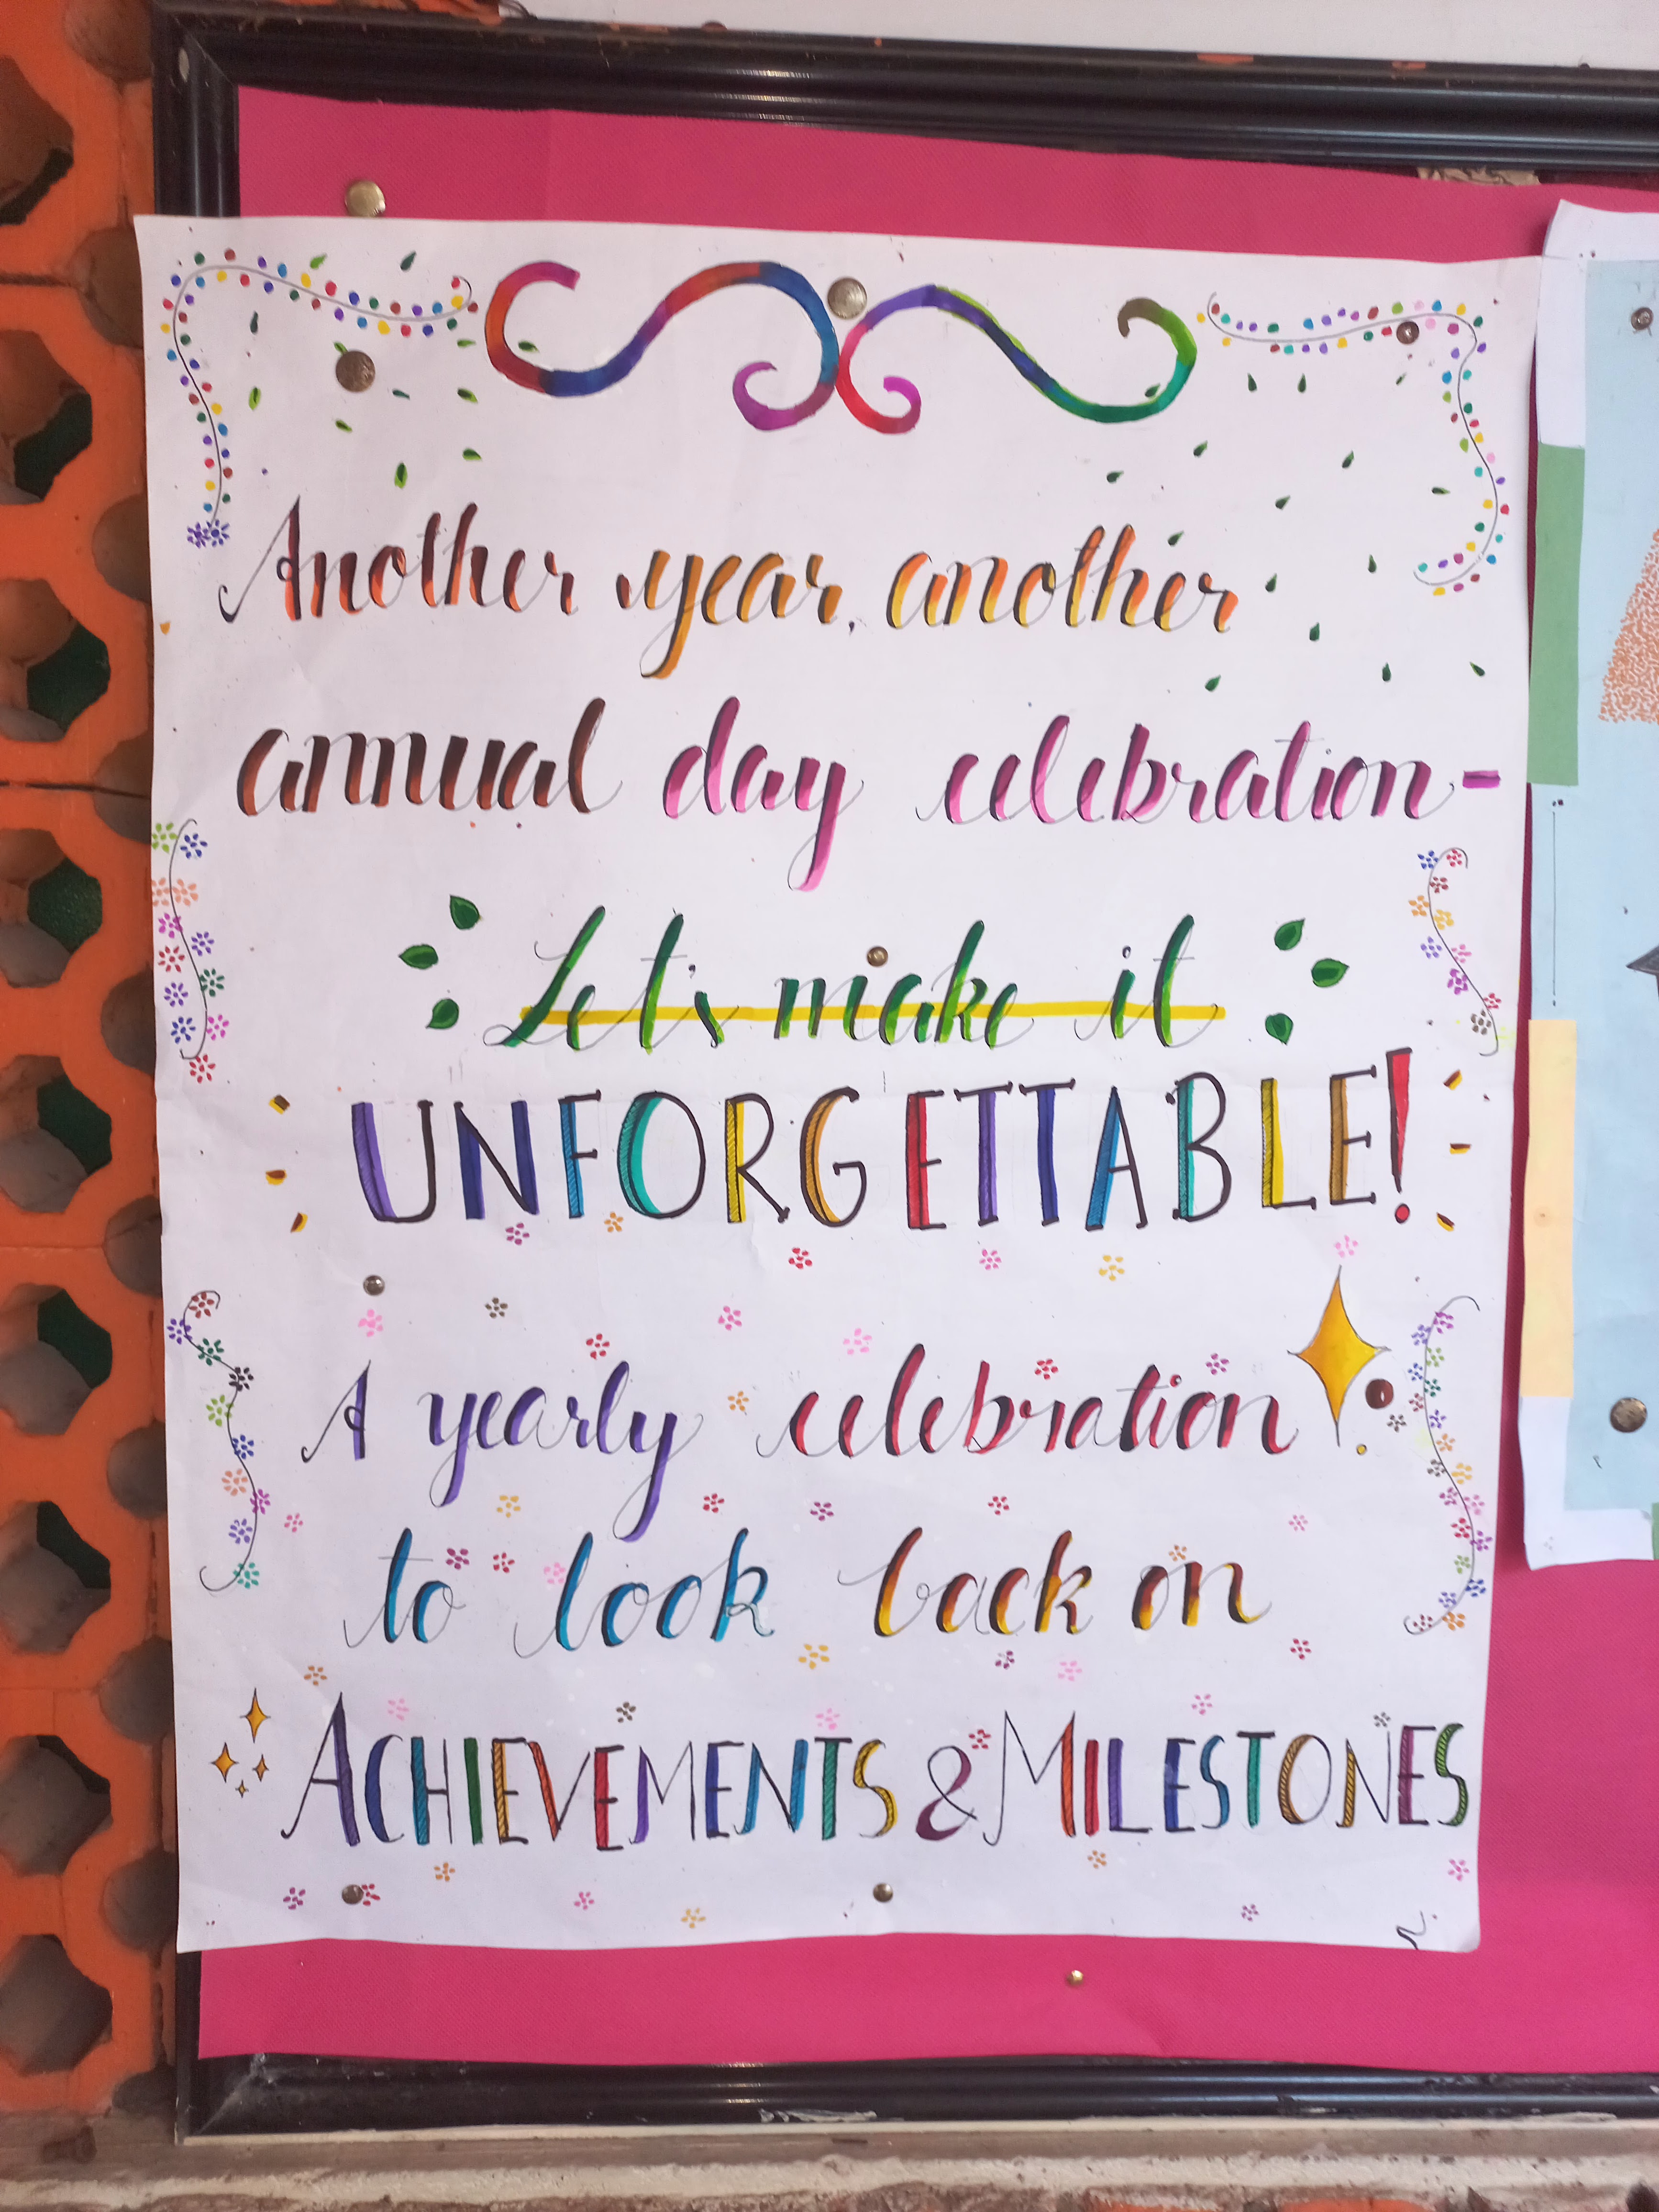 Another year, another
annual day celebration-
Let's make it
UNFORGETTABLE!
A yearly celebration
to look back on
ACHIEVEMENTS & MILESTONES